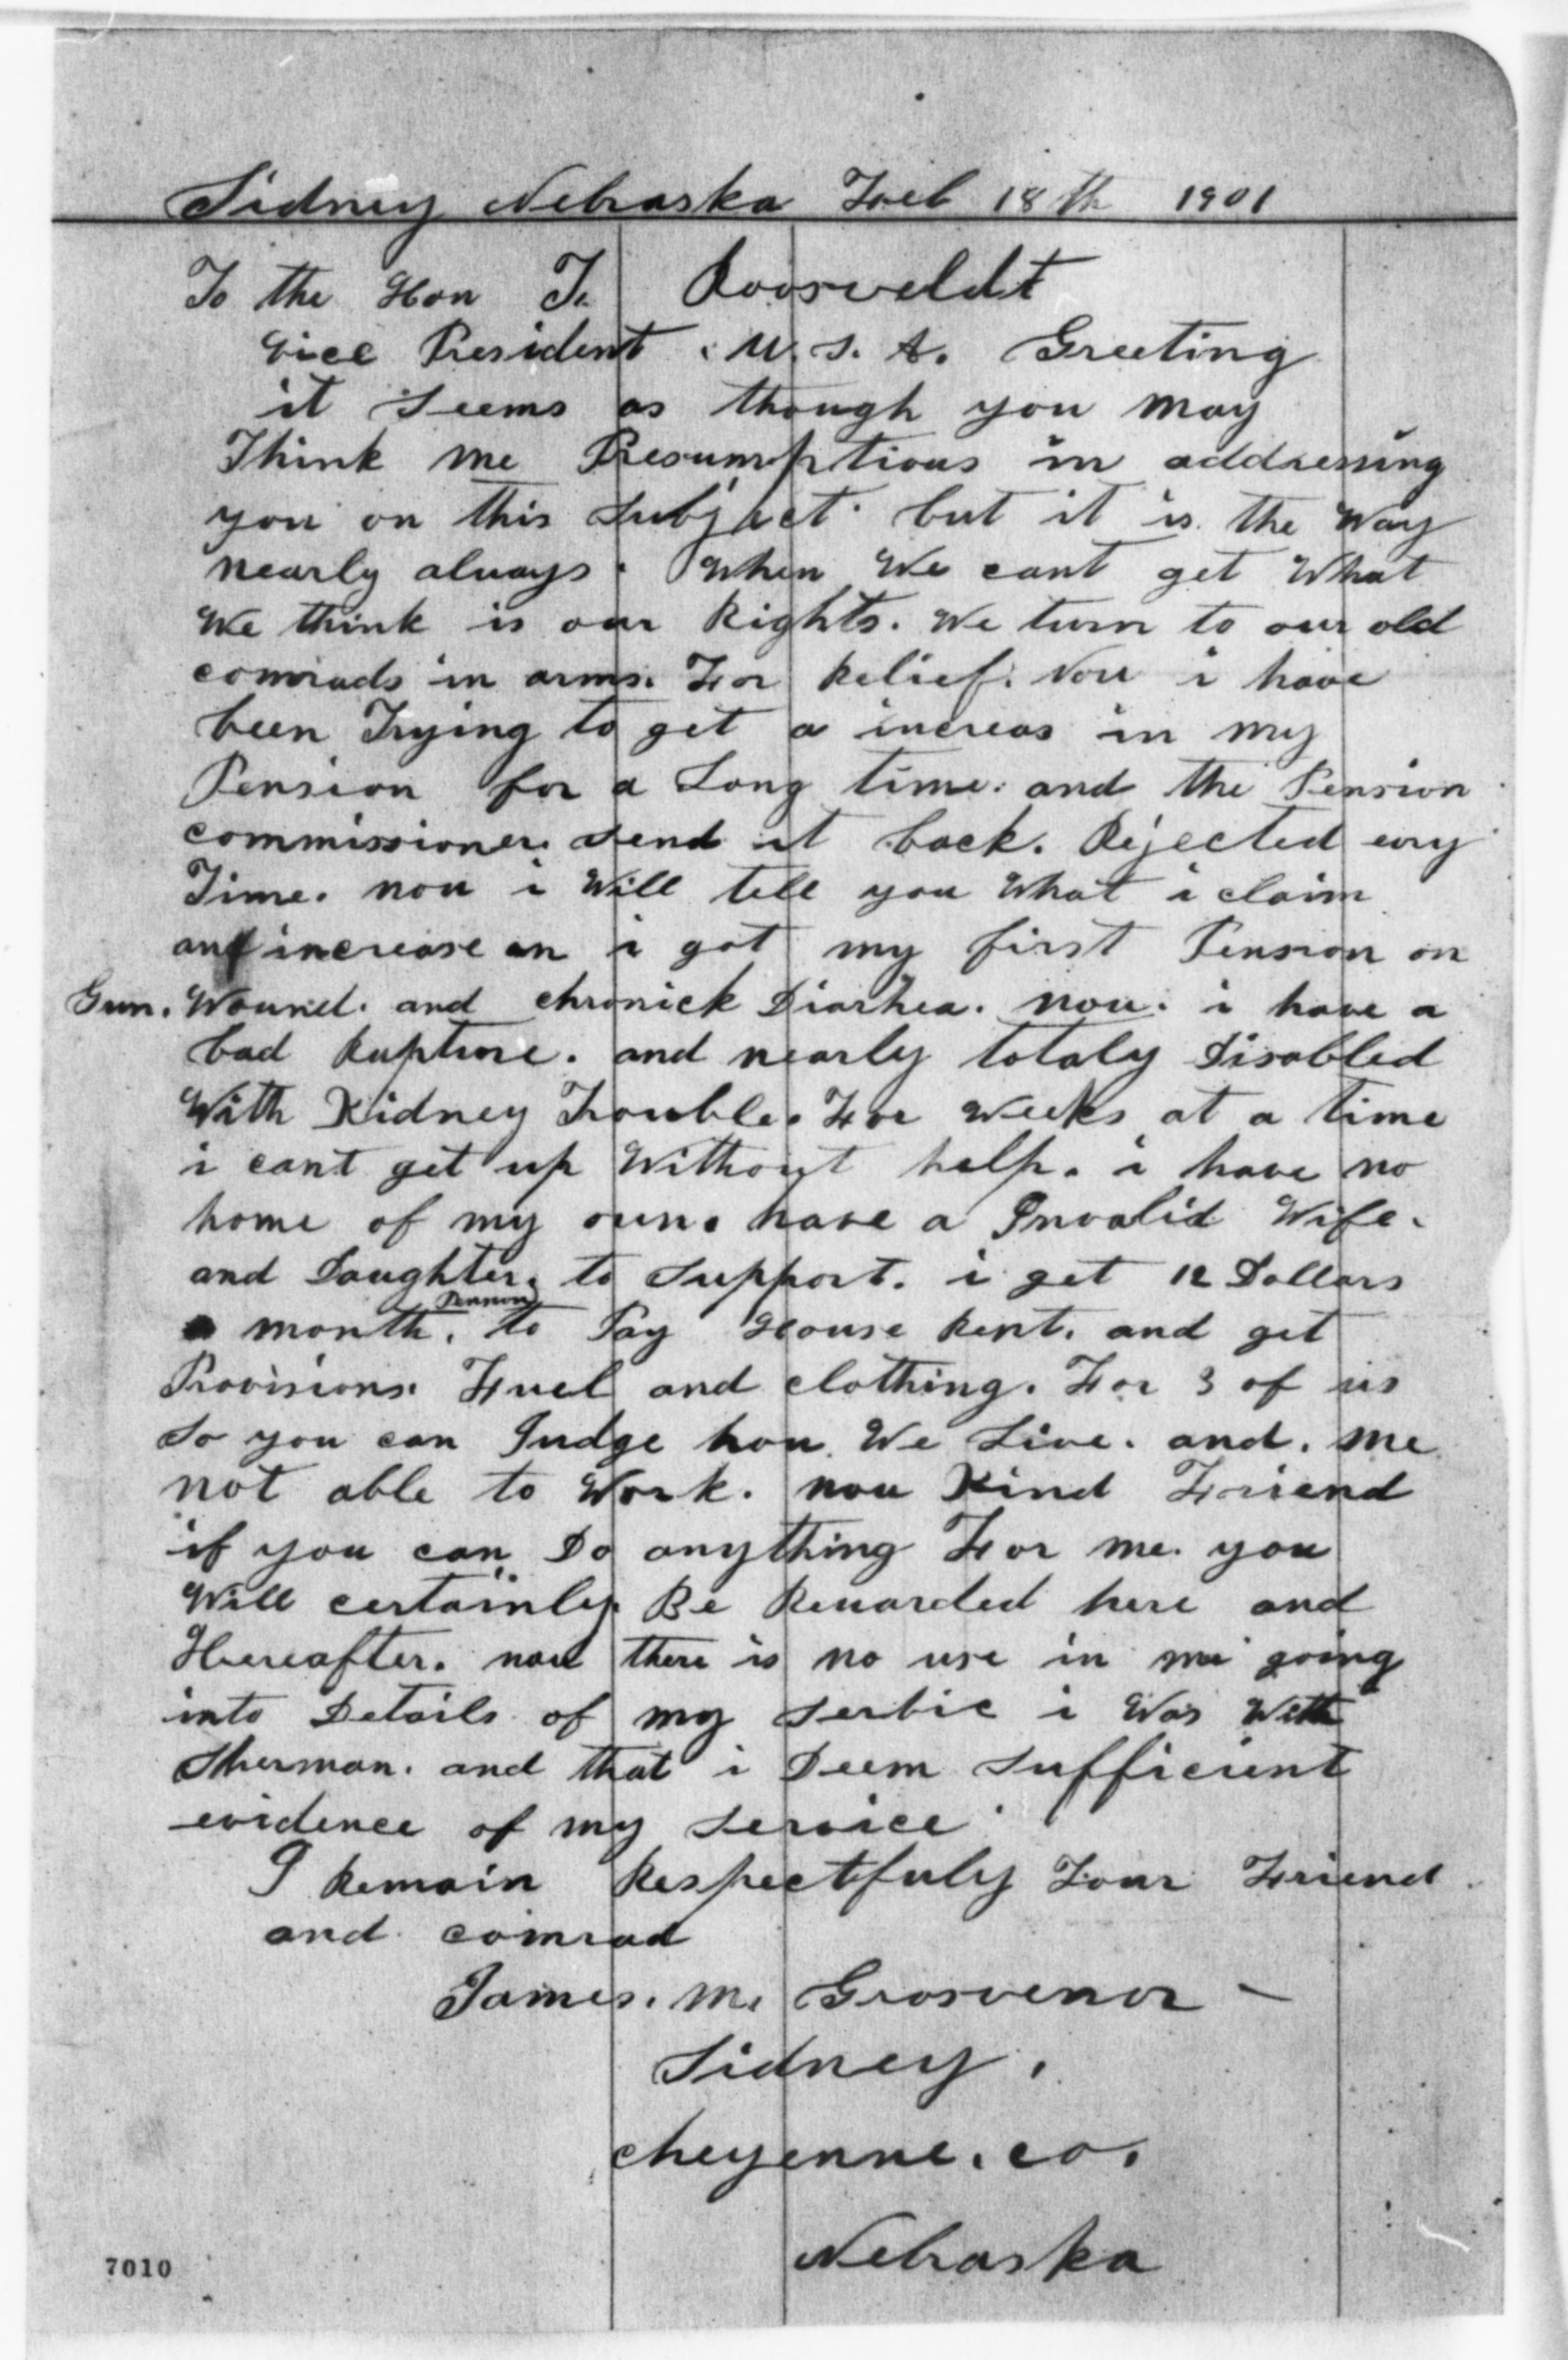 Sidney Nebraska Feb 18th 1901
To the Hon T. Roosveldt
Vice President . U. S. A. Greeting
it Seems as though you may
Think me Presumptious in addressing
you on this Subject. but it is the Way
nearly always. When We cant get What
We think is our Rights. We turn to our old
comrads in arms. For Relief. Now i have
been Trying to get a increas in my
Pension for a Long time. and the Pension
commissioner. send it back. Rejected evry
Time. now i Will tell you What i claim
an increase on i got my first Pension on
Gun. Wound. and chronick Diarhea. now. i have a
bad Rupture. and nearly totaly Disabled
With Kidney Trouble. For Weeks at a time
i cant get up Without help. i have no
home of my own. have a Invalid Wife.
and Daughter. to Support. i get 12 Dollars
Pension
a month. to Pay House Rent. and get
Provisions. Fuel and clothing. For 3 of us
So you can Judge how We Live. and. me
not able to Work. now Kind Friend
if you can Do anything For me. you
Will certainley. Be Rewarded here and
Hereafter. now there is no use in me going
into Details of my Serbic i Was With
Sherman. and that i Deem Sufficient
evidence of my Service.
I Remain Respectfuly Your Friend.
and comrad
James. M. Grosvenor -
Sidney.
cheyenne. co.
Nebraska
7010